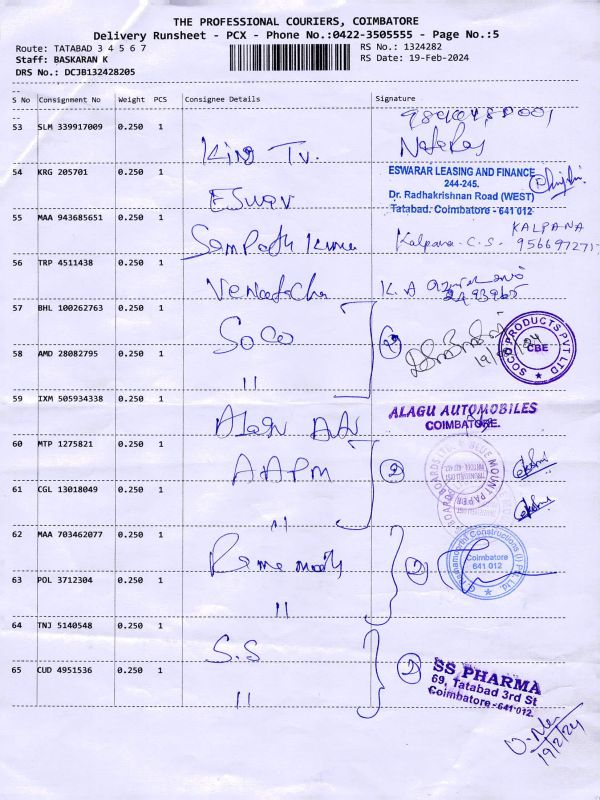 THE PROFESSIONAL COURIERS, COIMBATORE
Delivery Runsheet - PCX - Phone No.:0422-3505555 - Page No.:5
Route: TATABAD 3 4 5 6 7
RS No.: 1324282
Staff: BASKARAN K
RS Date: 19-Feb-2024
DRS No.: DCJB132428205
S No Consignment No Weight PCS Consignee Details Signature
53 SLM 339917009 0.250 1 King Tv.
54 KRG 205701 0.250 1 Eswar
ESWARAR LEASING AND FINANCE
244-245.
Dr. Radhakrishnan Road (WEST)
Tatabad. Coimbatore - 641 012
55 MAA 943685651 0.250 1 Sampath Kumar Kalpana. C. S. KALPANA
56 TRP 4511438 0.250 1 K. A
57 BHL 100262763 0.250 1 Soco
19/2/24
SOCO PRODUCTS PVT LTD
CBE
58 AMD 28082795 0.250 1 "
59 IXM 505934338 0.250 1
ALAGU AUTOMOBILES
COIMBATORE.
60 MTP 1275821 0.250 1 AAPM
61 CGL 13018049 0.250 1 "
62 MAA 703462077 0.250 1
Constructions (I) Pvt. Ltd.
Coimbatore
641 012
63 POL 3712304 0.250 1 "
64 TNJ 5140548 0.250 1 S.S
65 CUD 4951536 0.250 1 "
SS PHARMA
69, Tatabad 3rd St
Coimbatore - 641 012.
19/2/24